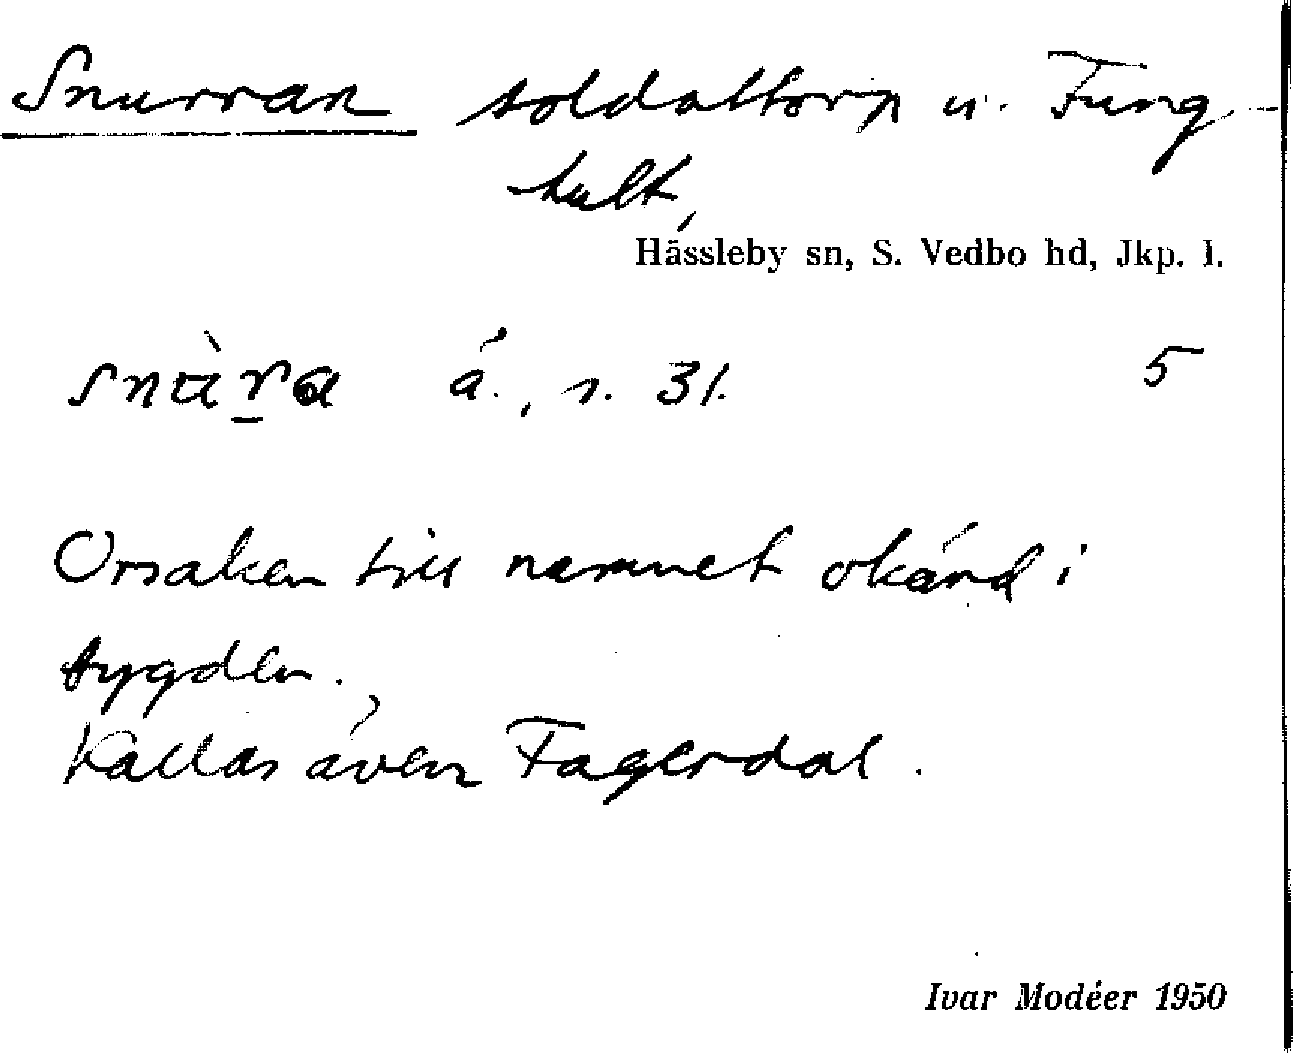 Snurran soldattorp u. Fung-
hult,
Hässleby sn, S. Vedbo hd, Jkp. l.
snùr̲a å., s. 31. 5
Orsaken till namnet okänd i
bygden.
Kallas även Fagerdal.
Ivar Modéer 1950